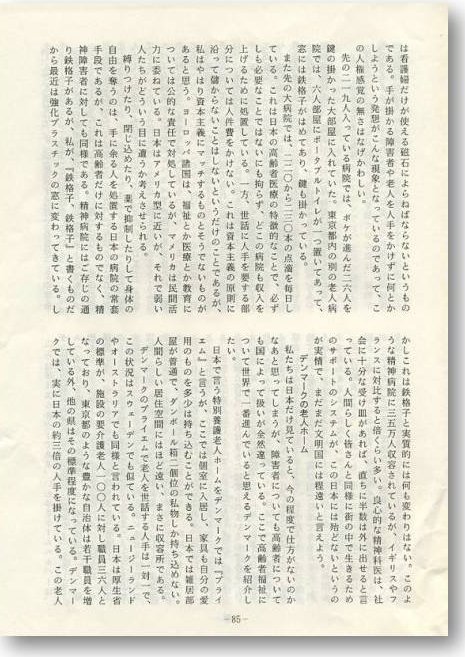 は看護婦だけが使える磁石によらねばならないというもの
である。手が掛かる障害者や老人を人手をかけずに何とか
しようという発想がこんな現象となっているのであって、こ
の人権感覚の無さはなげかわしい。
先の二一九人入っている病院では、ボケが進んだ二六人を
鍵の掛かった大部屋に入れていた。東京都内の別の老人病
院では、六人部屋にポータブルトイレが一つ置いてあって、
窓には鉄格子がはめてあり、鍵も掛かっている。
また先の大病院では、二二〇から二三〇本の点滴を毎日し
ている。これは日本の高齢者医療の特徴的なことで、必ず
しも必要なことではないにも拘らず、どこの病院も収入を
上げるために処置している。一方、世話に人手を要する部
分については人件費をかけない。これは資本主義の原則に
沿って儲からないことはしないというだけのことであるが、
私はやはり資本主義にマッチするものとそうでないものが
あると思う。ヨーロッパ諸国は、福祉とか医療とか教育に
ついては公的な責任で対処しているが、アメリカは民間活
力に委ねている。日本はアメリカ型に近いが、それで弱い
人たちがどういう目に遭うか考えさせられる。
縛りつけたり、閉じ込めたり、薬で抑制したりして身体の
自由を奪うのは、手に余る人を処置する日本の病院の常套
手段であるが、これは高齢者だけに対するものでなく、精
神障害者に対しても同様である。精神病院にはご存じの通
り鉄格子があるが、私が、『鉄格子、鉄格子』と書くものだ
から最近は強化プラスチックの窓に変わってきている。し
かしこれは鉄格子と実質的には何も変わりはない。このよ
うな精神病院に三五万人も収容されているが、イギリスやフ
ランスに対比すると倍くらい多い。良心的な精神科医は、社
会に十分な受け皿があれば、直ちに半数は外に出せると言
っている。人間らしく皆さんと同様に街の中で生きるため
のサポートのシステムが、この日本には殆どないというの
が実情で、まだまだ文明国には程遠いと言えよう。
デンマークの老人ホーム
私たちは日本だけ見ていると、今の程度で仕方がないのか
なあと思ってしまうが、障害者についても高齢者について
も国によって扱いが全然違っている。ここで高齢者福祉に
ついて世界で一番進んでいると思えるデンマークを紹介し
たい。
日本で言う特別養護老人ホームをデンマークでは『プライ
エム』と言うが、ここでは個室に入居し、家具も自分の愛
用のものを多少は持ち込むことができる。日本では雑居部
屋が普通で、ダンボール箱一個位の私物しか持ち込めない。
人間らしい居住空間にはほど遠い、まさに収容所である。
デンマークのプライエムで老人を世話する人手は一対一で、
この状況はスウェーデンでも似ている。ニュージーランド
やオーストラリアでも同様と言われている。日本は厚生省
の標準が、施設の要介護老人一〇〇人に対し職員三六人と
なっており、東京都のような豊かな自治体は若干職員を増
している外、他の県はその標準程度になっている。デンマー
クでは、実に日本の約三倍の人手を掛けている。この老人
－85－